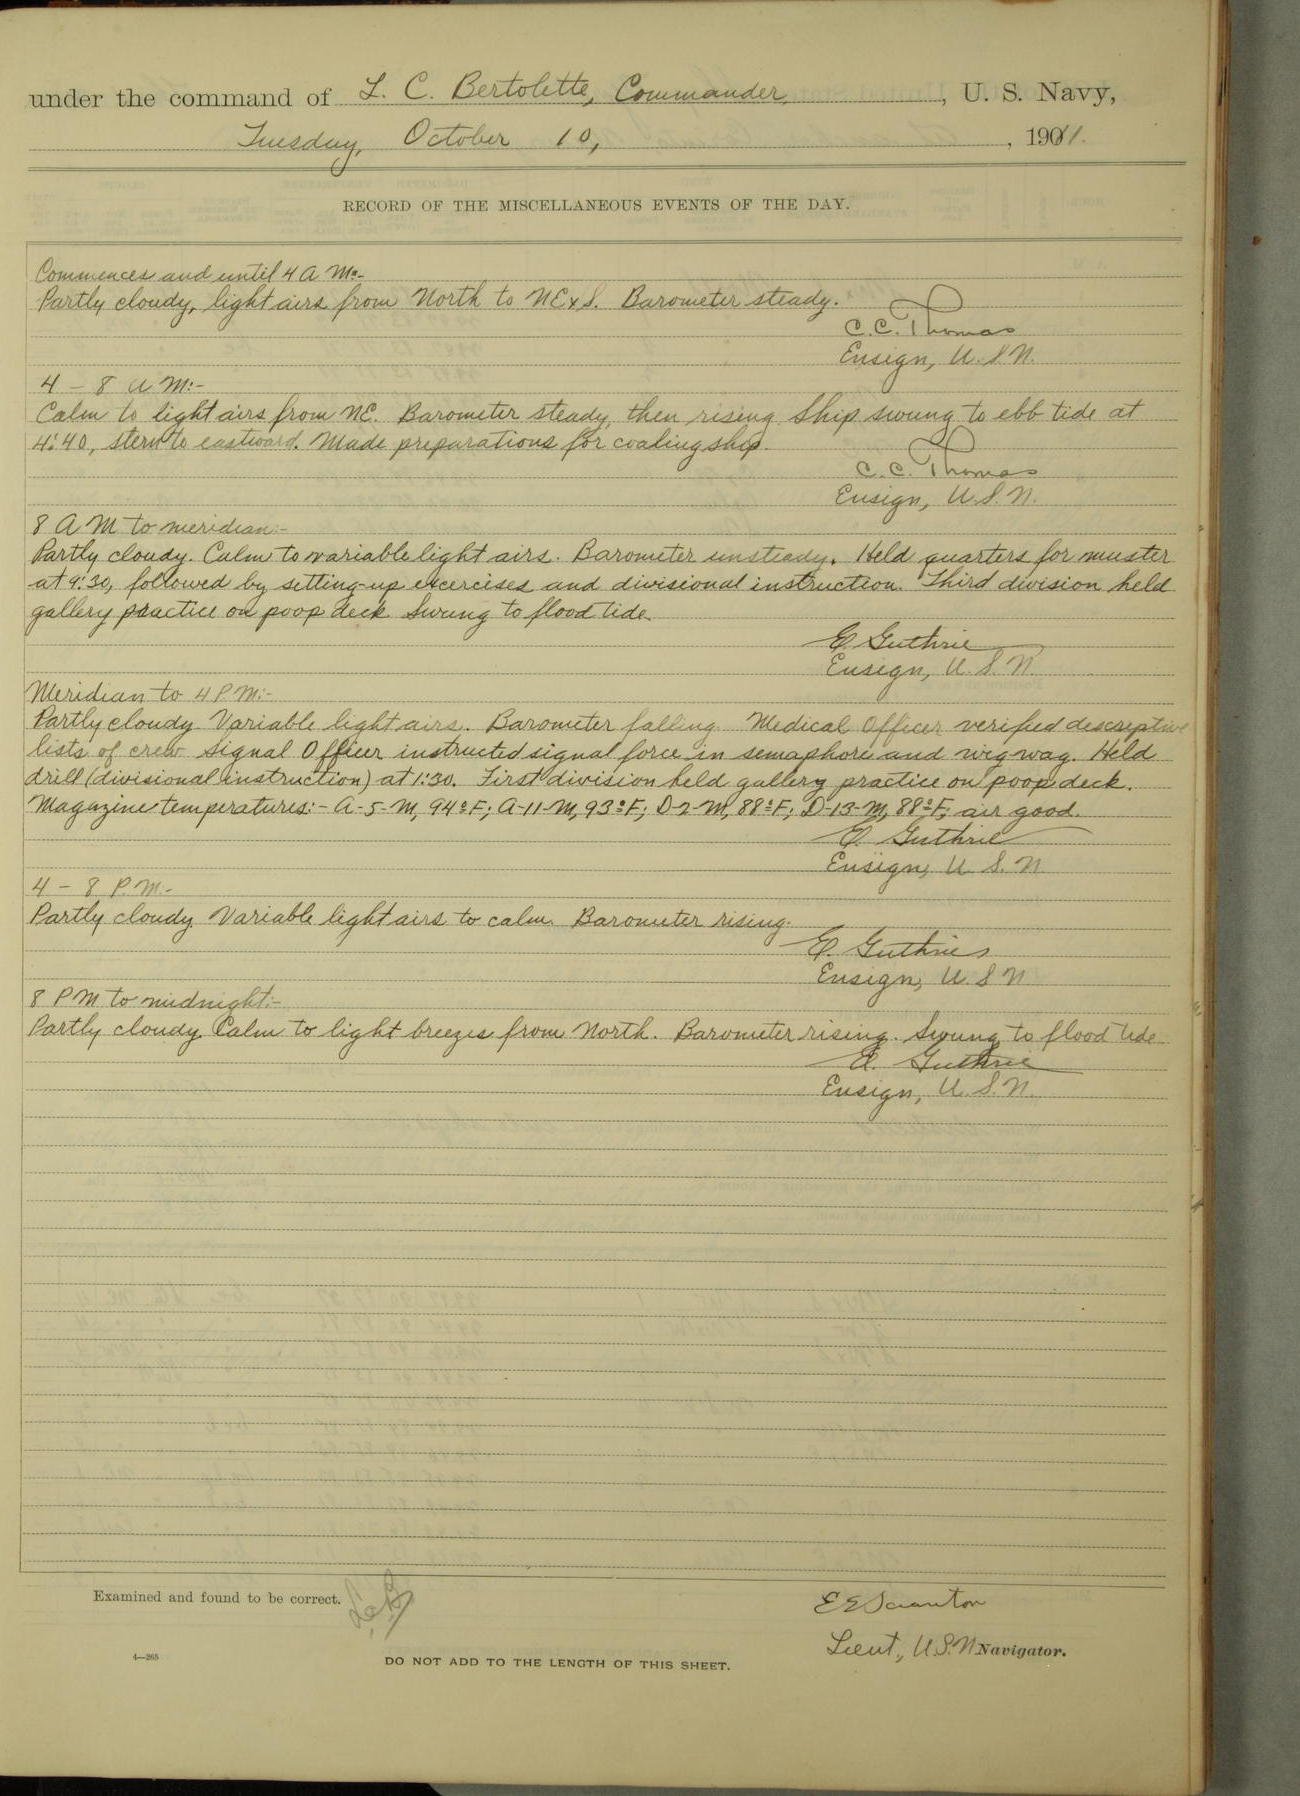 under the command of L. C. Bertolette, Commander, U. S. Navy,
Tuesday, October 10, , 1911.
RECORD OF THE MISCELLANEOUS EVENTS OF THE DAY.
Commences and until 4 A M:-
Partly cloudy, light airs from North to NExS. Barometer steady.
C. C. Thomas
Ensign, U. S. N.
4 - 8 A M:-
Calm to light airs from NE. Barometer steady, then rising. Ship swung to ebb tide at
4:40, stern to eastward. Made preparations for coaling ship.
C. C. Thomas
Ensign, U. S. N.
8 A M to meridian:-
Partly cloudy. Calm to variable light airs. Barometer unsteady. Held quarters for muster
at 9:30, followed by setting-up excercises and divisional instruction. Third division held
gallery practice on poop deck. Swung to flood tide.
E. Guthrie
Ensign, U. S. N.
Meridian to 4 P M:-
Partly cloudy. Variable light airs. Barometer falling. Medical Officer verified descriptive
lists of crew. Signal Officer instructed signal force in semaphore and wigwag. Held
drill (divisional instruction) at 1:30. First division held gallery practice on poop deck.
Magazine temperatures:- A-5-M, 94°F; A-11-M, 93°F; D-2-M, 88°F; D-13-M, 88°F, air good.
E. Guthrie
Ensign, U. S. N.
4 - 8 P. M.-
Partly cloudy. Variable light airs to calm. Barometer rising.
E. Guthrie
Ensign, U. S. N.
8 P M to midnight:-
Partly cloudy. Calm to light breezes from North. Barometer rising. Swung to flood tide.
E. Guthrie
Ensign, U. S. N.
Examined and found to be correct.
E E Scranton
Lieut., U. S. N. Navigator.
4—265
DO NOT ADD TO THE LENGTH OF THIS SHEET.